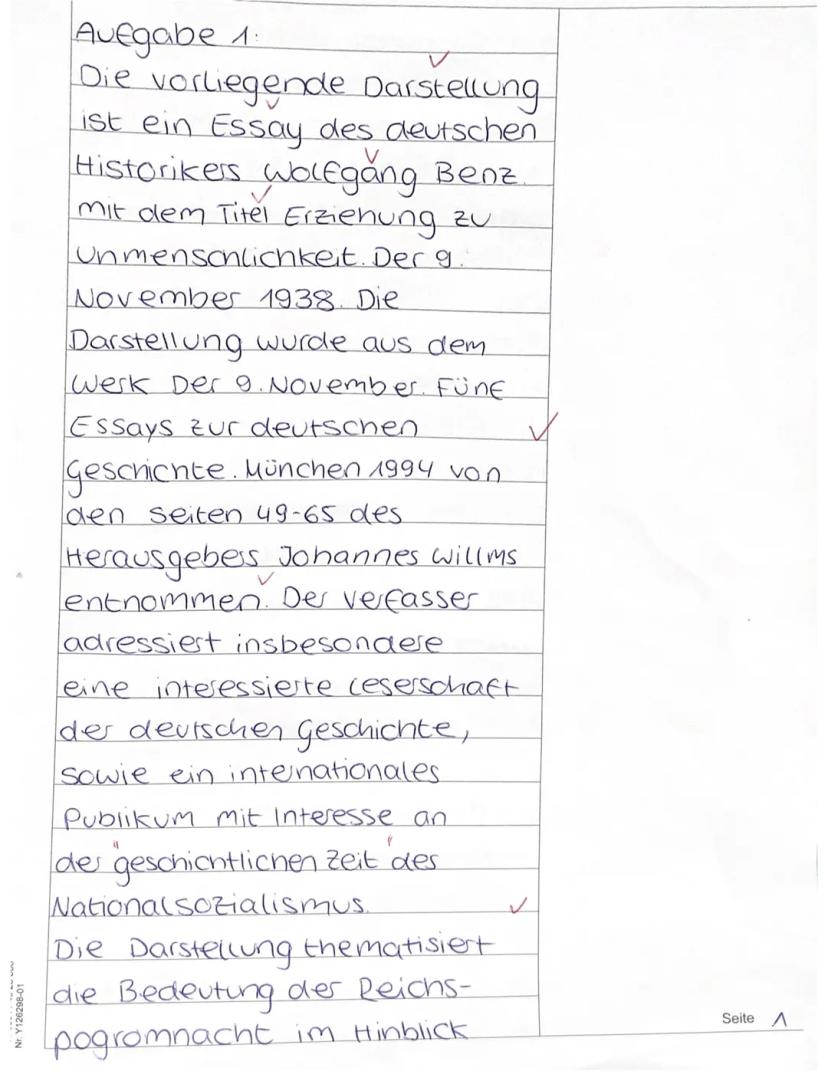 Aufgabe 1:
Die vorliegende Darstellung
ist ein Essay des deutschen
Historikers Wolfgang Benz
mit dem Titel Erziehung zu
Unmenschlichkeit. Der 9.
November 1938. Die
Darstellung wurde aus dem
Werk Der 9. November. Fünf
Essays zur deutschen
Geschichte. München 1994 von
den Seiten 49-65 des
Herausgebers Johannes Willms
entnommen. Der Verfasser
adressiert insbesondere
eine interessierte Leserschaft
der deutschen Geschichte,
sowie ein internationales
Publikum mit Interesse an
der "geschichtlichen Zeit" des
Nationalsozialismus.
Die Darstellung thematisiert
die Bedeutung der Reichs-
pogromnacht im Hinblick
Seite 1
Nr. Y126298-01